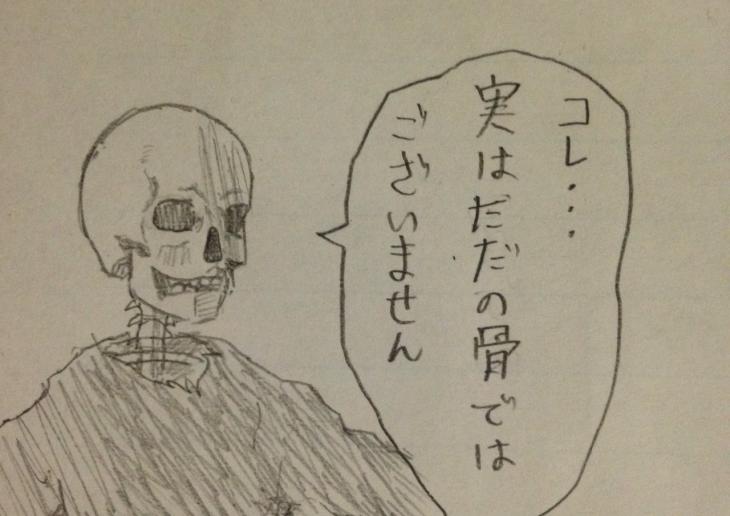 コレ・・・
実はだだの骨では
ございません